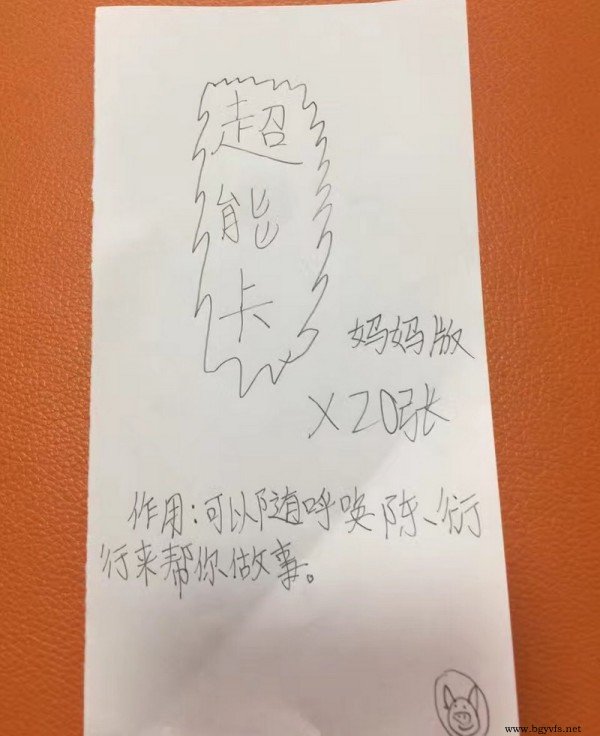 超
能
卡
妈妈版
X20张
作用:可以随呼唤陈、衍
衍来帮你做事。
www.bgyvfs.net